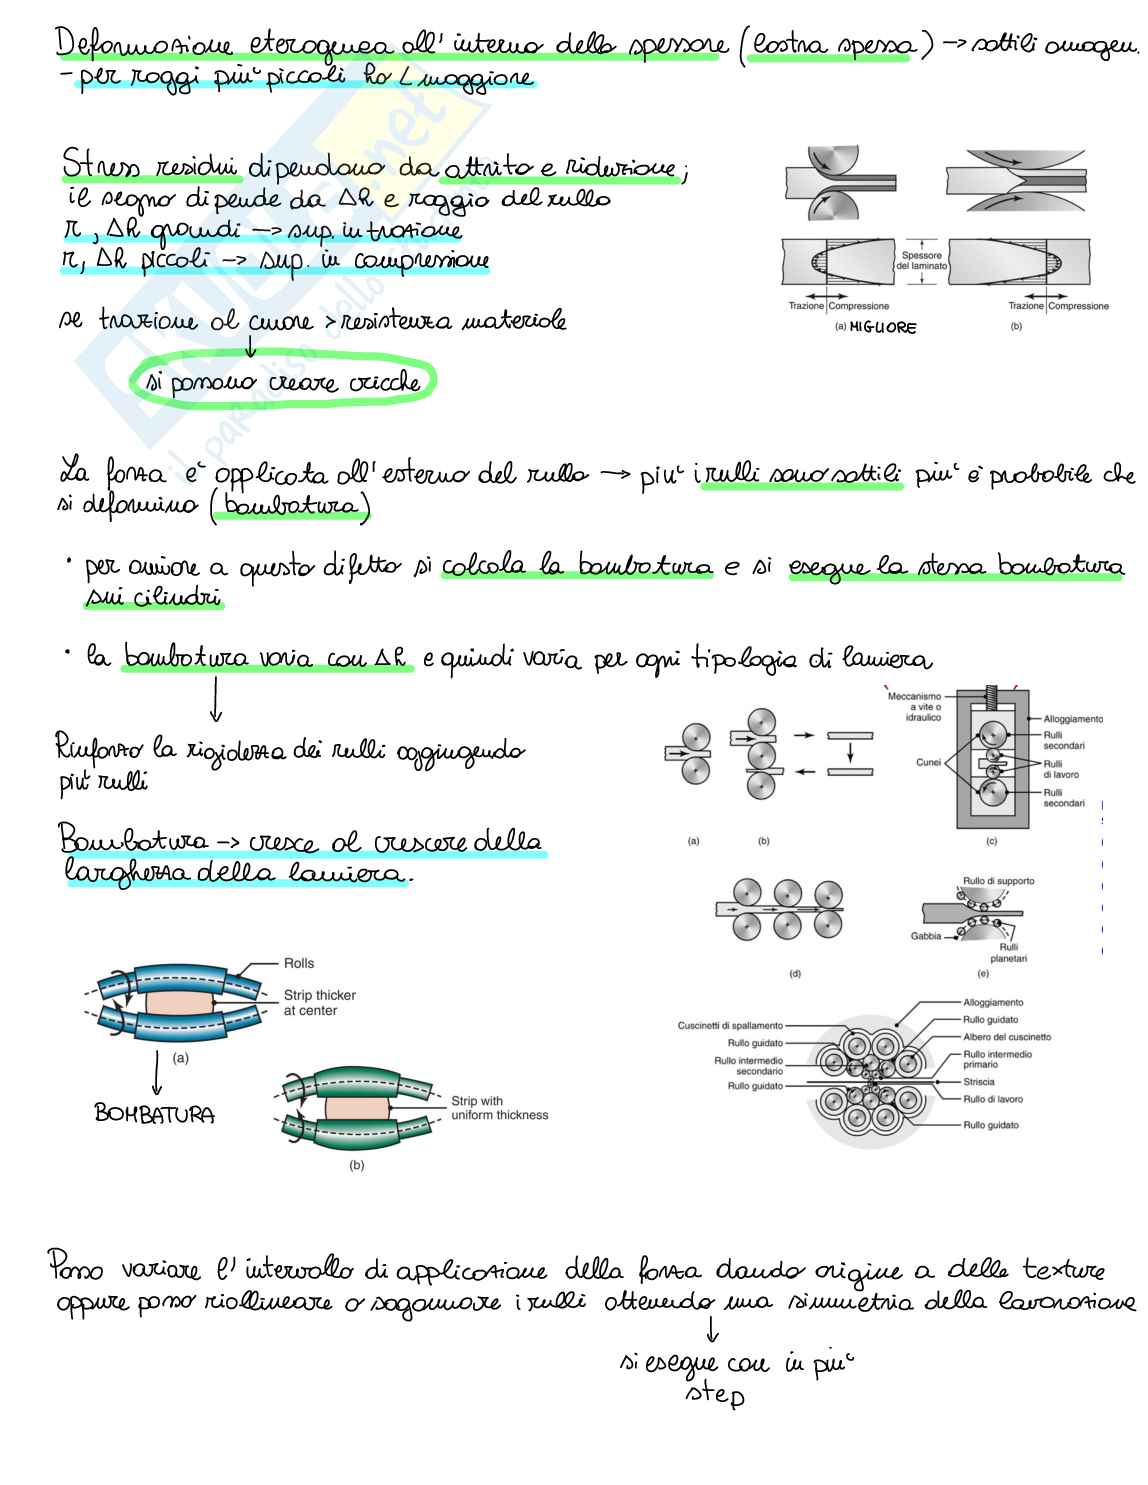 Deformazione eterogenea all'interno dello spessore (lastra spessa) → sottili omogen.
- per raggi piu' piccoli ho L maggiore
Stress residui dipendono da attrito e riduzione;
il segno dipende da Δh e raggio del rullo
r, Δh grandi → sup. in trazione
r, Δh piccoli → sup. in compressione
se trazione al cuore > resistenza materiale
↓
si possono creare cricche
Spessore
del laminato
Trazione Compressione
(a) MIGLIORE
Trazione Compressione
(b)
La forza e' applicata all'esterno del rullo → piu' i rulli sono sottili piu' è probabile che
si deformino (bombatura)
• per ovviare a questo difetto si calcola la bombatura e si esegue la stessa bombatura
sui cilindri
• la bombatura varia con Δh e quindi varia per ogni tipologia di lamiera
↓
Rinforzo la rigidezza dei rulli aggiungendo
più rulli
Bombatura → cresce al crescere della
larghezza della lamiera.
Meccanismo
a vite o
idraulico
Alloggiamento
Rulli
secondari
Cunei
Rulli
di lavoro
Rulli
secondari
(a)
(b)
(c)
Rullo di supporto
Gabbia
Rulli
planetari
(d)
(e)
Rolls
Strip thicker
at center
(a)
BOMBATURA
Strip with
uniform thickness
(b)
Cuscinetti di spallamento
Rullo guidato
Rullo intermedio
secondario
Rullo guidato
Alloggiamento
Rullo guidato
Albero del cuscinetto
Rullo intermedio
primario
Striscia
Rullo di lavoro
Rullo guidato
Posso variare l'intervallo di applicazione della forza dando origine a delle texture
oppure posso riallineare o sagomare i rulli ottenendo una simmetria della lavorazione
↓
si esegue con in piu'
step